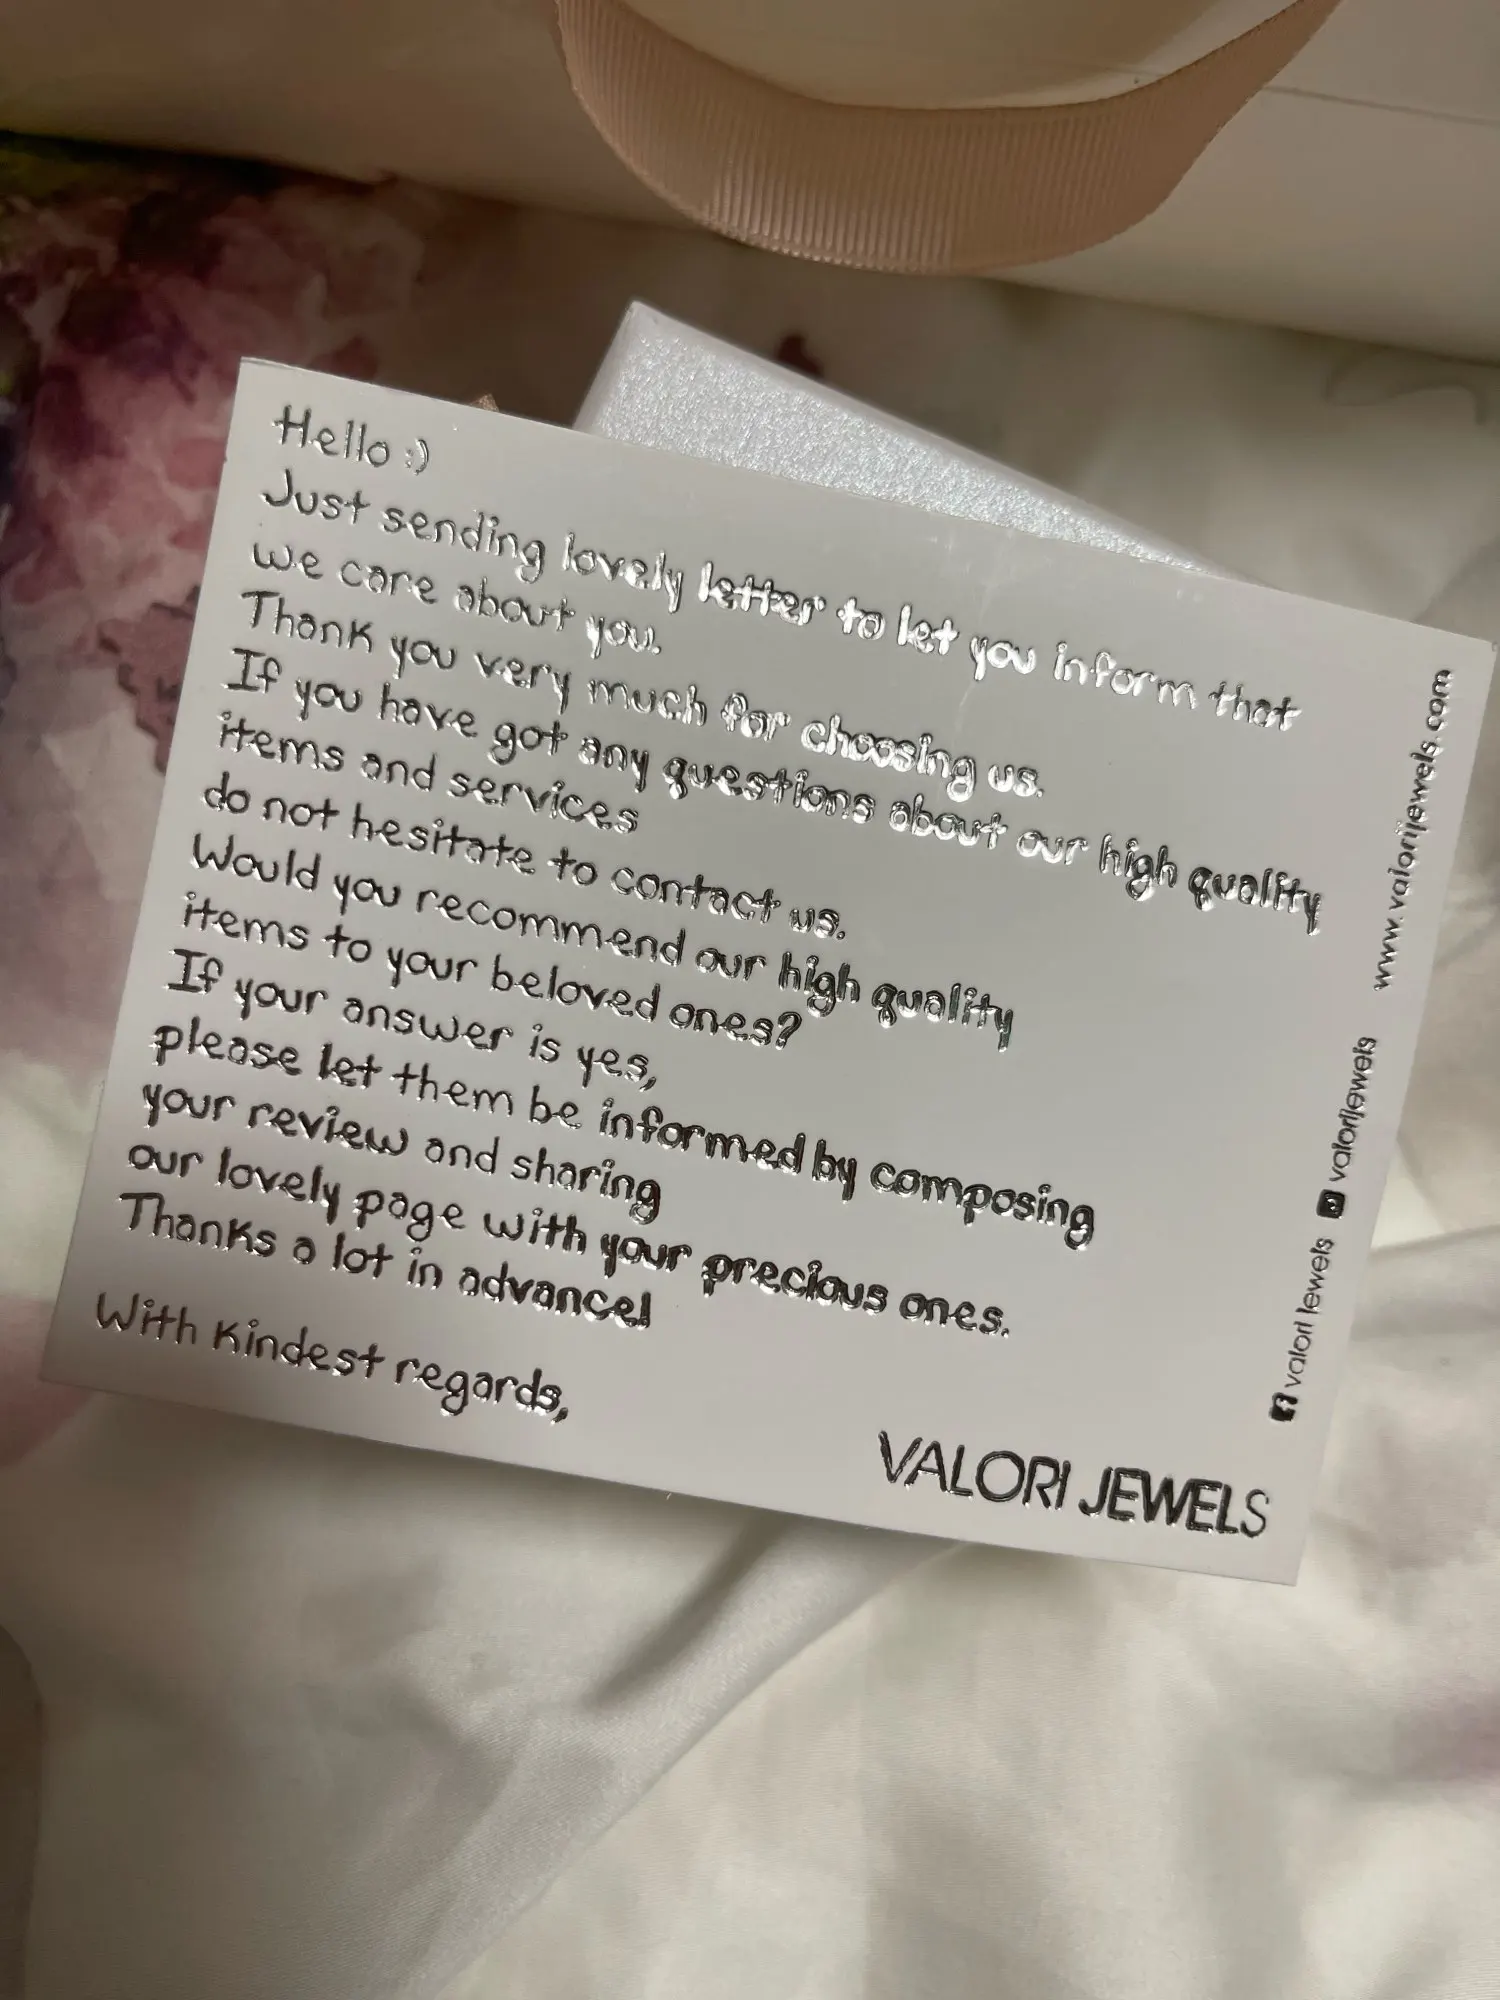 Hello :)
Just sending lovely letter to let you inform that
we care about you.
Thank you very much for choosing us.
If you have got any questions about our high quality
items and services
do not hesitate to contact us.
Would you recommend our high quality
items to your beloved ones?
If your answer is yes,
please let them be informed by composing
your review and sharing
our lovely page with your precious ones.
Thanks a lot in advance!
With Kindest regards,
VALORI JEWELS
valori jewels
valorijewels
www.valorijewels.com